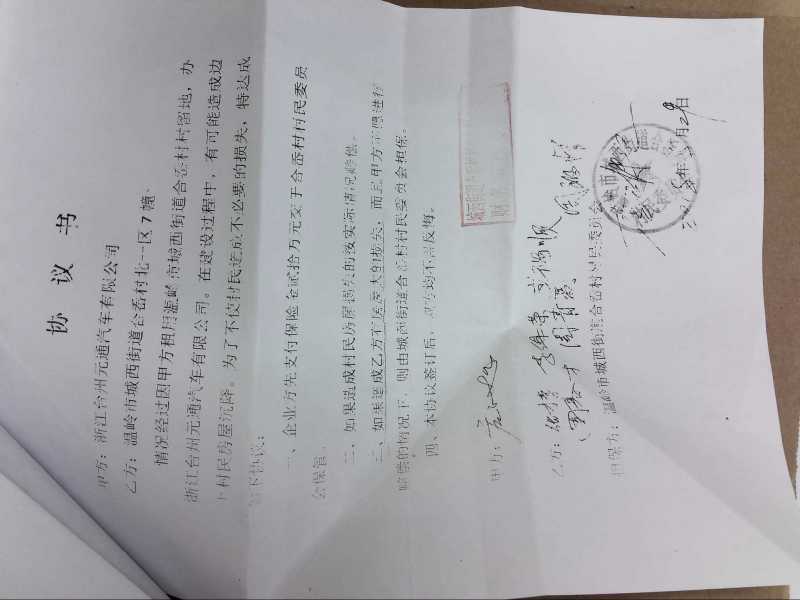 协议书
甲方：浙江台州元通汽车有限公司
乙方：温岭市城西街道合岙村北一区7幢.
情况经过因甲方租用温岭市城西街道合岙村村留地，办
浙江台州元通汽车有限公司。在建设过程中，有可能造成边
上村民房屋沉降。为了不使村民造成不必要的损失，特达成
如下协议：
一、企业方先支付保险金贰拾万元交于合岙村村民委员
会保管。
二、如果造成村民房屋损失的按实际情况赔偿。
三、如果造成乙方有房屋大的损失，而且甲方不愿进行
赔偿的情况下，则由城西街道合岙村村民委员会担保。
四、本协议签订后，双方均不得反悔。
甲方：
乙方：
担保方：温岭市城西街道合岙村村民委员会
年 月 日